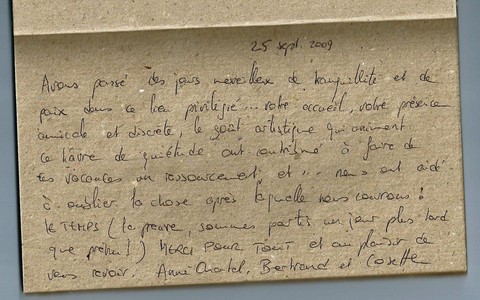 25 sept. 2009
Avons passé des jours merveilleux de tranquillité et de
paix dans ce lieu privilégié... votre accueil, votre présence
amicale et discrète, le goût artistique qui animent
ce hâvre de quiétude ont contribué à faire de
ces vacances un ressourcement et... nous ont aidé
à oublier la chose après laquelle nous courons :
le TEMPS (la preuve, sommes partis un jour plus tard
que prévu !) MERCI POUR TOUT et au plaisir de
vous revoir. Anne Chantal, Bertrand et Cosette